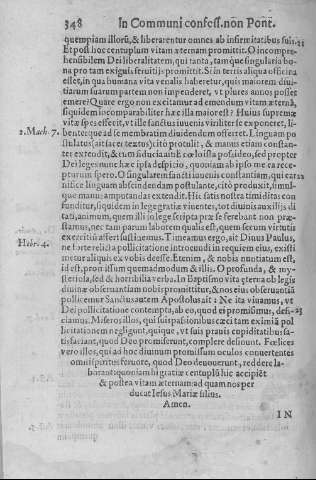 348 In Communi confess. non Pont.
quempiam illorũ, & liberarentur omnes ab infirmitatibus suis. 21
Et post hoc centuplum vitam æternam promittit. O incompre-
hensibilem Dei liberalitatem, qui tanta, tamque singularia bo-
na pro tam exiguis seruitijs promittit. Si in terris aliqua officina
esset, in qua humana vita venalis haberetur, quis maiorem diui-
tiarum suarum partem non impenderet, vt plures annos posset
emere? Quare ergo non excitamur ad emendum vitam æternã,
siquidem incomparabiliter hæc illa maior est? Huius supremæ
2. Mach. 7. vitæ spes effecit, vt sancti illi iuuenes viriliter se exponerẽt, li-
benterque ad se membratim diuidendum offerret. Linguam po
stulatus (ait sacer textus) citò protulit, & manus etiam constan-
ter extendit, & cum fiducia ait: è cœlo ista possideo, sed propter
Dei leges nunc hæc ipsa despicio, quoniam ab ipso me ea rece-
pturum spero. O singularem sancti iuuenis constantiam, qui car 22
nifice linguam abscindendam postulante, citò produxit, simul-
que manus amputandas extendit. Hic satis nostra timiditas con
funditur, siquidem in lege gratiæ viuentes, tot diuinis auxilijs di
tati, animum, quem illi in lege scripta præ se ferebant non præ-
stamus, nec tam parum laborem qualis est, quem seruum virtutis
exercitia affert sustinemus. Timeamus ergo, ait Diuus Paulus,
Hebr. 4. ne forte relicta pollicitatione introeundi in requiem eius, existi
metur aliquis ex vobis deesse. Etenim, & nobis nuntiatum est,
id est, promissum quemadmodum & illis. O profunda, & my-
steriosa, sed & horribilia verba. In Baptismo vita æterna ob legis
diuinæ obseruantiam nobis promittitur, & nos eius obseruantiã
pollicemur Sanctus autem Apostolus ait: Ne ita viuamus, vt
Dei pollicitatione contempta, ab eo, quod ei promisimus, defi- 23
ciamus. Miseros illos, qui suis passionibus cæci tam eximiã pol
licitationem negligunt, quique, vt suis prauis cupiditatibus sa-
tisfaciant, quod Deo promiserunt, complere desinunt. Fœlices
vero illos, qui ad hoc diuinum promissum oculos conuertentes
omni spiritus feruore, quod Deo deuouerunt, reddere la-
borant: quoniam hi gratiæ centuplũ hic accipiẽt
& postea vitam æternam: ad quam nos per
ducat Iesus Mariæ filius.
Amen.
IN